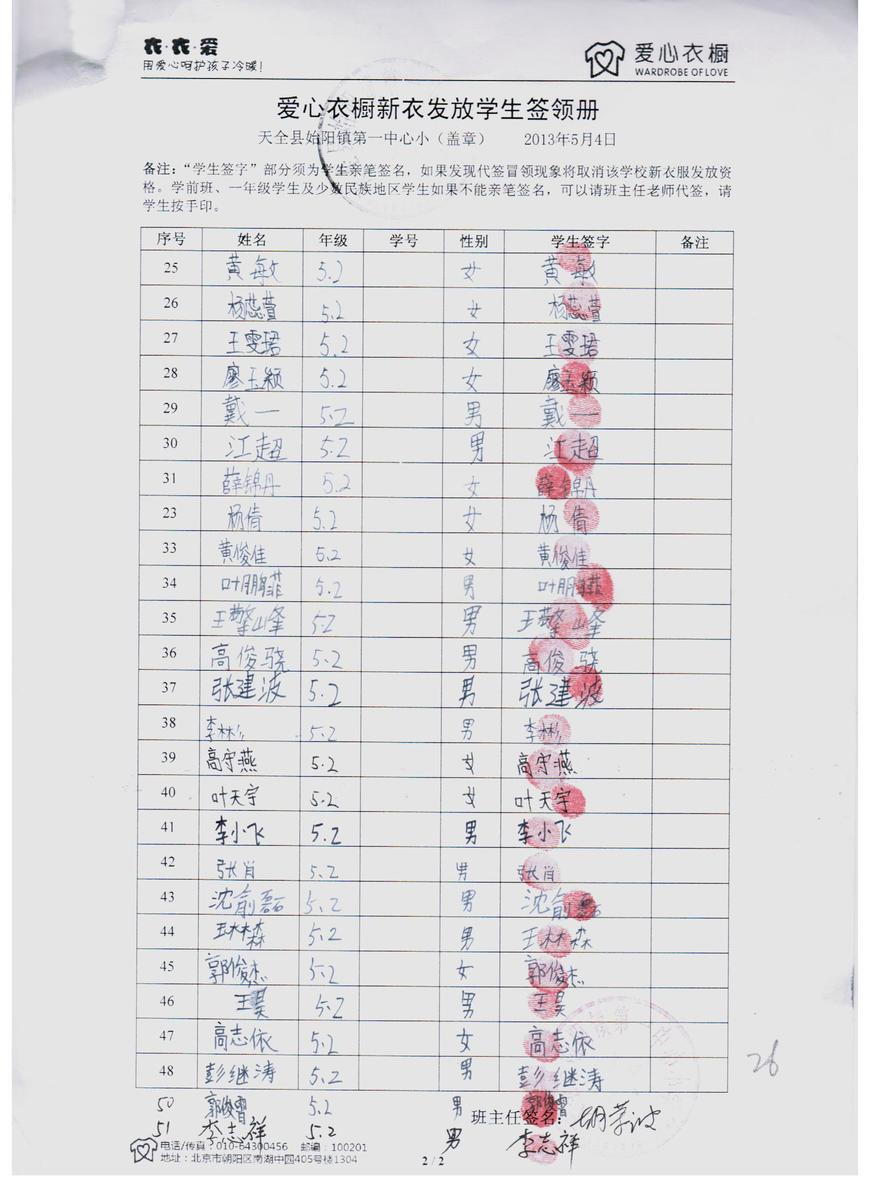 衣·衣·爱
用爱心呵护孩子冷暖!
爱心衣橱
WARDROBE OF LOVE
爱心衣橱新衣发放学生签领册
天全县始阳镇第一中心小(盖章) 2013年5月4日
备注:“学生签字”部分须为学生亲笔签名,如果发现代签冒领现象将取消该学校新衣服发放资
格。学前班、一年级学生及少数民族地区学生如果不能亲笔签名,可以请班主任老师代签,请
学生按手印。
序号 姓名 年级 学号 性别 学生签字 备注
25 黄敏 5.2 女 黄敏
26 杨蕊萱 5.2 女 杨蕊萱
27 王雯珺 5.2 女 王雯珺
28 廖玉颖 5.2 女 廖玉颖
29 戴一 5.2 男 戴一
30 江超 5.2 男 江超
31 薛锦丹 5.2 女 薛锦丹
23 杨倩 5.2 女 杨倩
33 黄俊佳 5.2 女 黄俊佳
34 叶鹏菲 5.2 男 叶鹏菲
35 王擎峰 5.2 男 王擎峰
36 高俊骁 5.2 男 高俊骁
37 张建波 5.2 男 张建波
38 李彬 5.2 男 李彬
39 高守燕 5.2 女 高守燕
40 叶天宇 5.2 女 叶天宇
41 李小飞 5.2 男 李小飞
42 张肖 5.2 男 张肖
43 沈俞磊 5.2 男 沈俞磊
44 王林森 5.2 男 王林森
45 郭俊杰 5.2 女 郭俊杰
46 王昊 5.2 男 王昊
47 高志依 5.2 女 高志依
48 彭继涛 5.2 男 彭继涛
26
50 郭俊 5.2 男 郭俊
班主任签名:
51 李志祥 5.2 男 李志祥
电话/传真:010-64300456 邮编:100201
地址:北京市朝阳区南湖中园405号楼1304
2 / 2